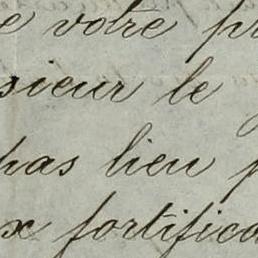 e votre pr
sieur le
pas lieu p
x fortifica